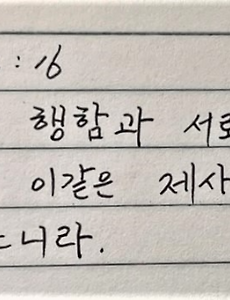 :16
행함과 서로
이같은 제사
느니라.